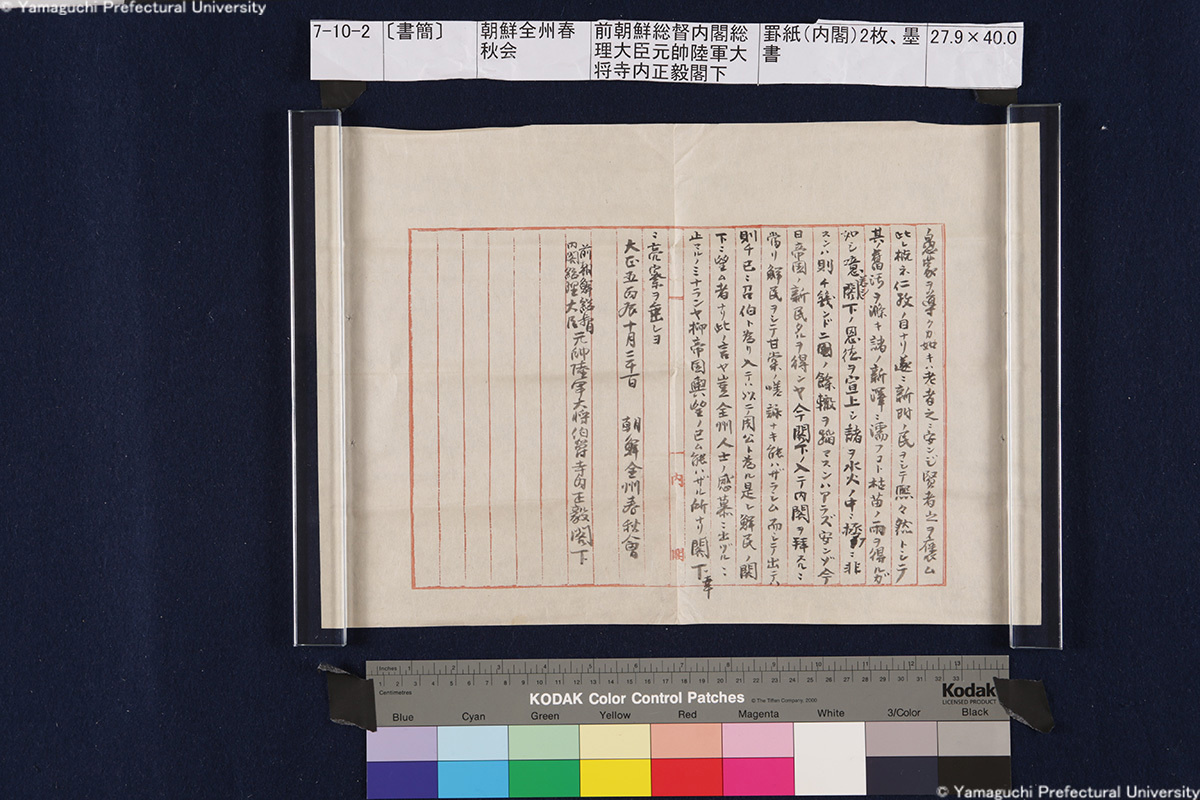 © Yamaguchi Prefectural University
7-10-2
〔書簡〕
朝鮮全州春
秋会
前朝鮮総督内閣総
理大臣元帥陸軍大
将寺内正毅閣下
罫紙(内閣)2枚、墨
書
27.9×40.0
ノ愚蒙ヲ導クカ如キハ老者之ニ安ンジ賢者之ヲ懐ム
此レ概ネ仁教ノ目ナリ遂ニ新附ノ民ヲシテ熙々然トシテ
其ノ舊汚ヲ滌キ諸ノ新澤ニ濡フコト枯苗ノ雨ヲ得ルガ
如シ閣下ノ恩徳ヲ宣上シ諸ヲ水火ノ中ニ拯フニ非
スンハ則チ殘ンド二國ノ餘轍ヲ蹈マスンハアラズ安ンゾ今
日帝國ノ新民タルヲ得ンヤ今閣下ノ入テ内閣ヲ拜スルニ
當リ鮮民ヲシテ甘棠ノ嗟詠ナキ能ハザラシム而シテ出テハ
則チ已ニ召伯ト為り入テハ以テ周公ト為ル是レ鮮民ノ閣
下ニ望ム者ナリ此ノ言ヤ豈全州人士ノ感慕ニ出ヅルニ
止マルノミナランヤ抑帝国輿望ノ已ム能ハザル所ナリ閣下幸
ニ亮察ヲ垂レヨ
大正五丙辰十月二十一日 朝鮮全州春秋會
前朝鮮総督
内閣総理大臣
元帥陸軍大将伯爵寺内正毅閣下
内閣
Inches
Centimetres
KODAK Color Control Patches
© The Tiffen Company, 2000
Kodak
LICENSED PRODUCT
Blue Cyan Green Yellow Red Magenta White 3/Color Black
© Yamaguchi Prefectural University